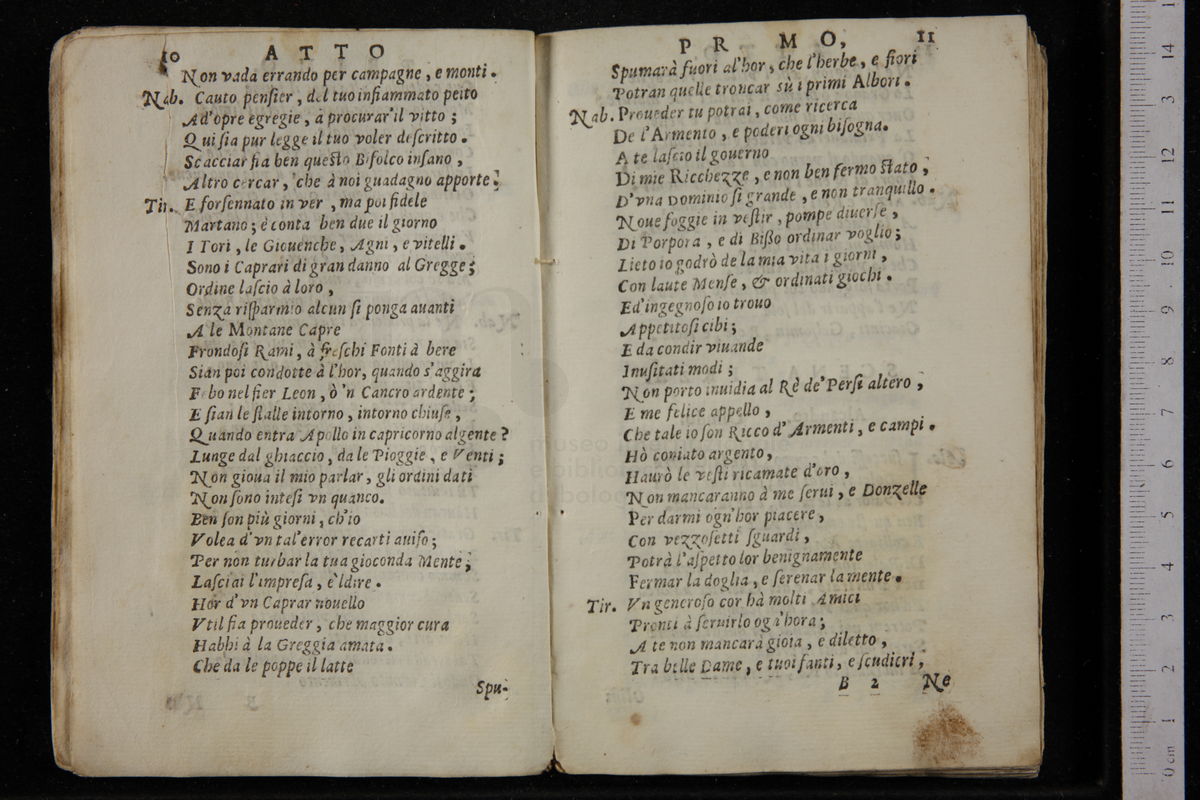 10 ATTO
Non vada errando per campagne, e monti.
Nab. Cauto pensier, del tuo infiammato petto
Ad'opre egregie, à procurar'il vitto;
Qui sia pur legge il tuo voler descritto.
Scacciar fia ben questo Bifolco insano,
Altro cercar, che à noi guadagno apporte.
Tir. E forsennato in ver, ma poi fidele
Martano; è conta ben due il giorno
I Tori, le Giouenche, Agni, e vitelli.
Sono i Caprari di gran danno al Gregge;
Ordine lascio à loro,
Senza risparmio alcun si ponga auanti
A le Montane Capre
Frondosi Rami, à freschi Fonti à bere
Sian poi condotte à l'hor, quando s'aggira
Febo nel fier Leon, ò 'n Cancro ardente;
E sian le stalle intorno, intorno chiuse,
Quando entra Apollo in capricorno algente?
Lunge dal ghiaccio, da le Pioggie, e Venti;
Non gioua il mio parlar, gli ordini dati
Non sono intesi vn quanco.
Ben son più giorni, ch'io
Volea d'vn tal'error recarti auiso;
Per non turbar la tua gioconda Mente;
Lasciai l'impresa, e'l dire.
Hor d'vn Caprar nouello
Vtil fia proueder, che maggior cura
Habbi à la Greggia amata.
Che da le poppe il latte
Spu-
PRMO, 11
Spumarà fuori al'hor, che l'herbe, e fiori
Potran quelle troncar sù i primi Albori.
Nab. Proueder tu potrai, come ricerca
De l'Armento, e poderi ogni bisogna.
A te lascio il gouerno
Di mie Ricchezze, e non ben fermo stato;
D'vna Dominio si grande, e non tranquillo.
Noue foggie in vestir, pompe diuerse,
Di Porpora, e di Bisso ordinar voglio;
Lieto io godrò de la mia vita i giorni,
Con laute Mense, & ordinati giochi.
Ed'ingegnoso io trouo
Appetitosi cibi;
E da condir viuande
Inusitati modi;
Non porto inuidia al Rè de' Persi altero,
E me felice appello,
Che tale io son Ricco d'Armenti, e campi.
Hò coniato argento,
Haurò le vesti ricamate d'oro,
Non mancaranno à me serui, e Donzelle
Per darmi ogn'hor piacere,
Con vezzosetti sguardi,
Potrà l'aspetto lor benignamente
Fermar la doglia, e serenar la mente.
Tir. Vn generoso cor hà molti Amici
Pronti à seruirlo ogn'hora;
A te non mancarà gioia, e diletto,
Tra belle Dame, e tuoi fanti, e scudieri,
B 2 Ne